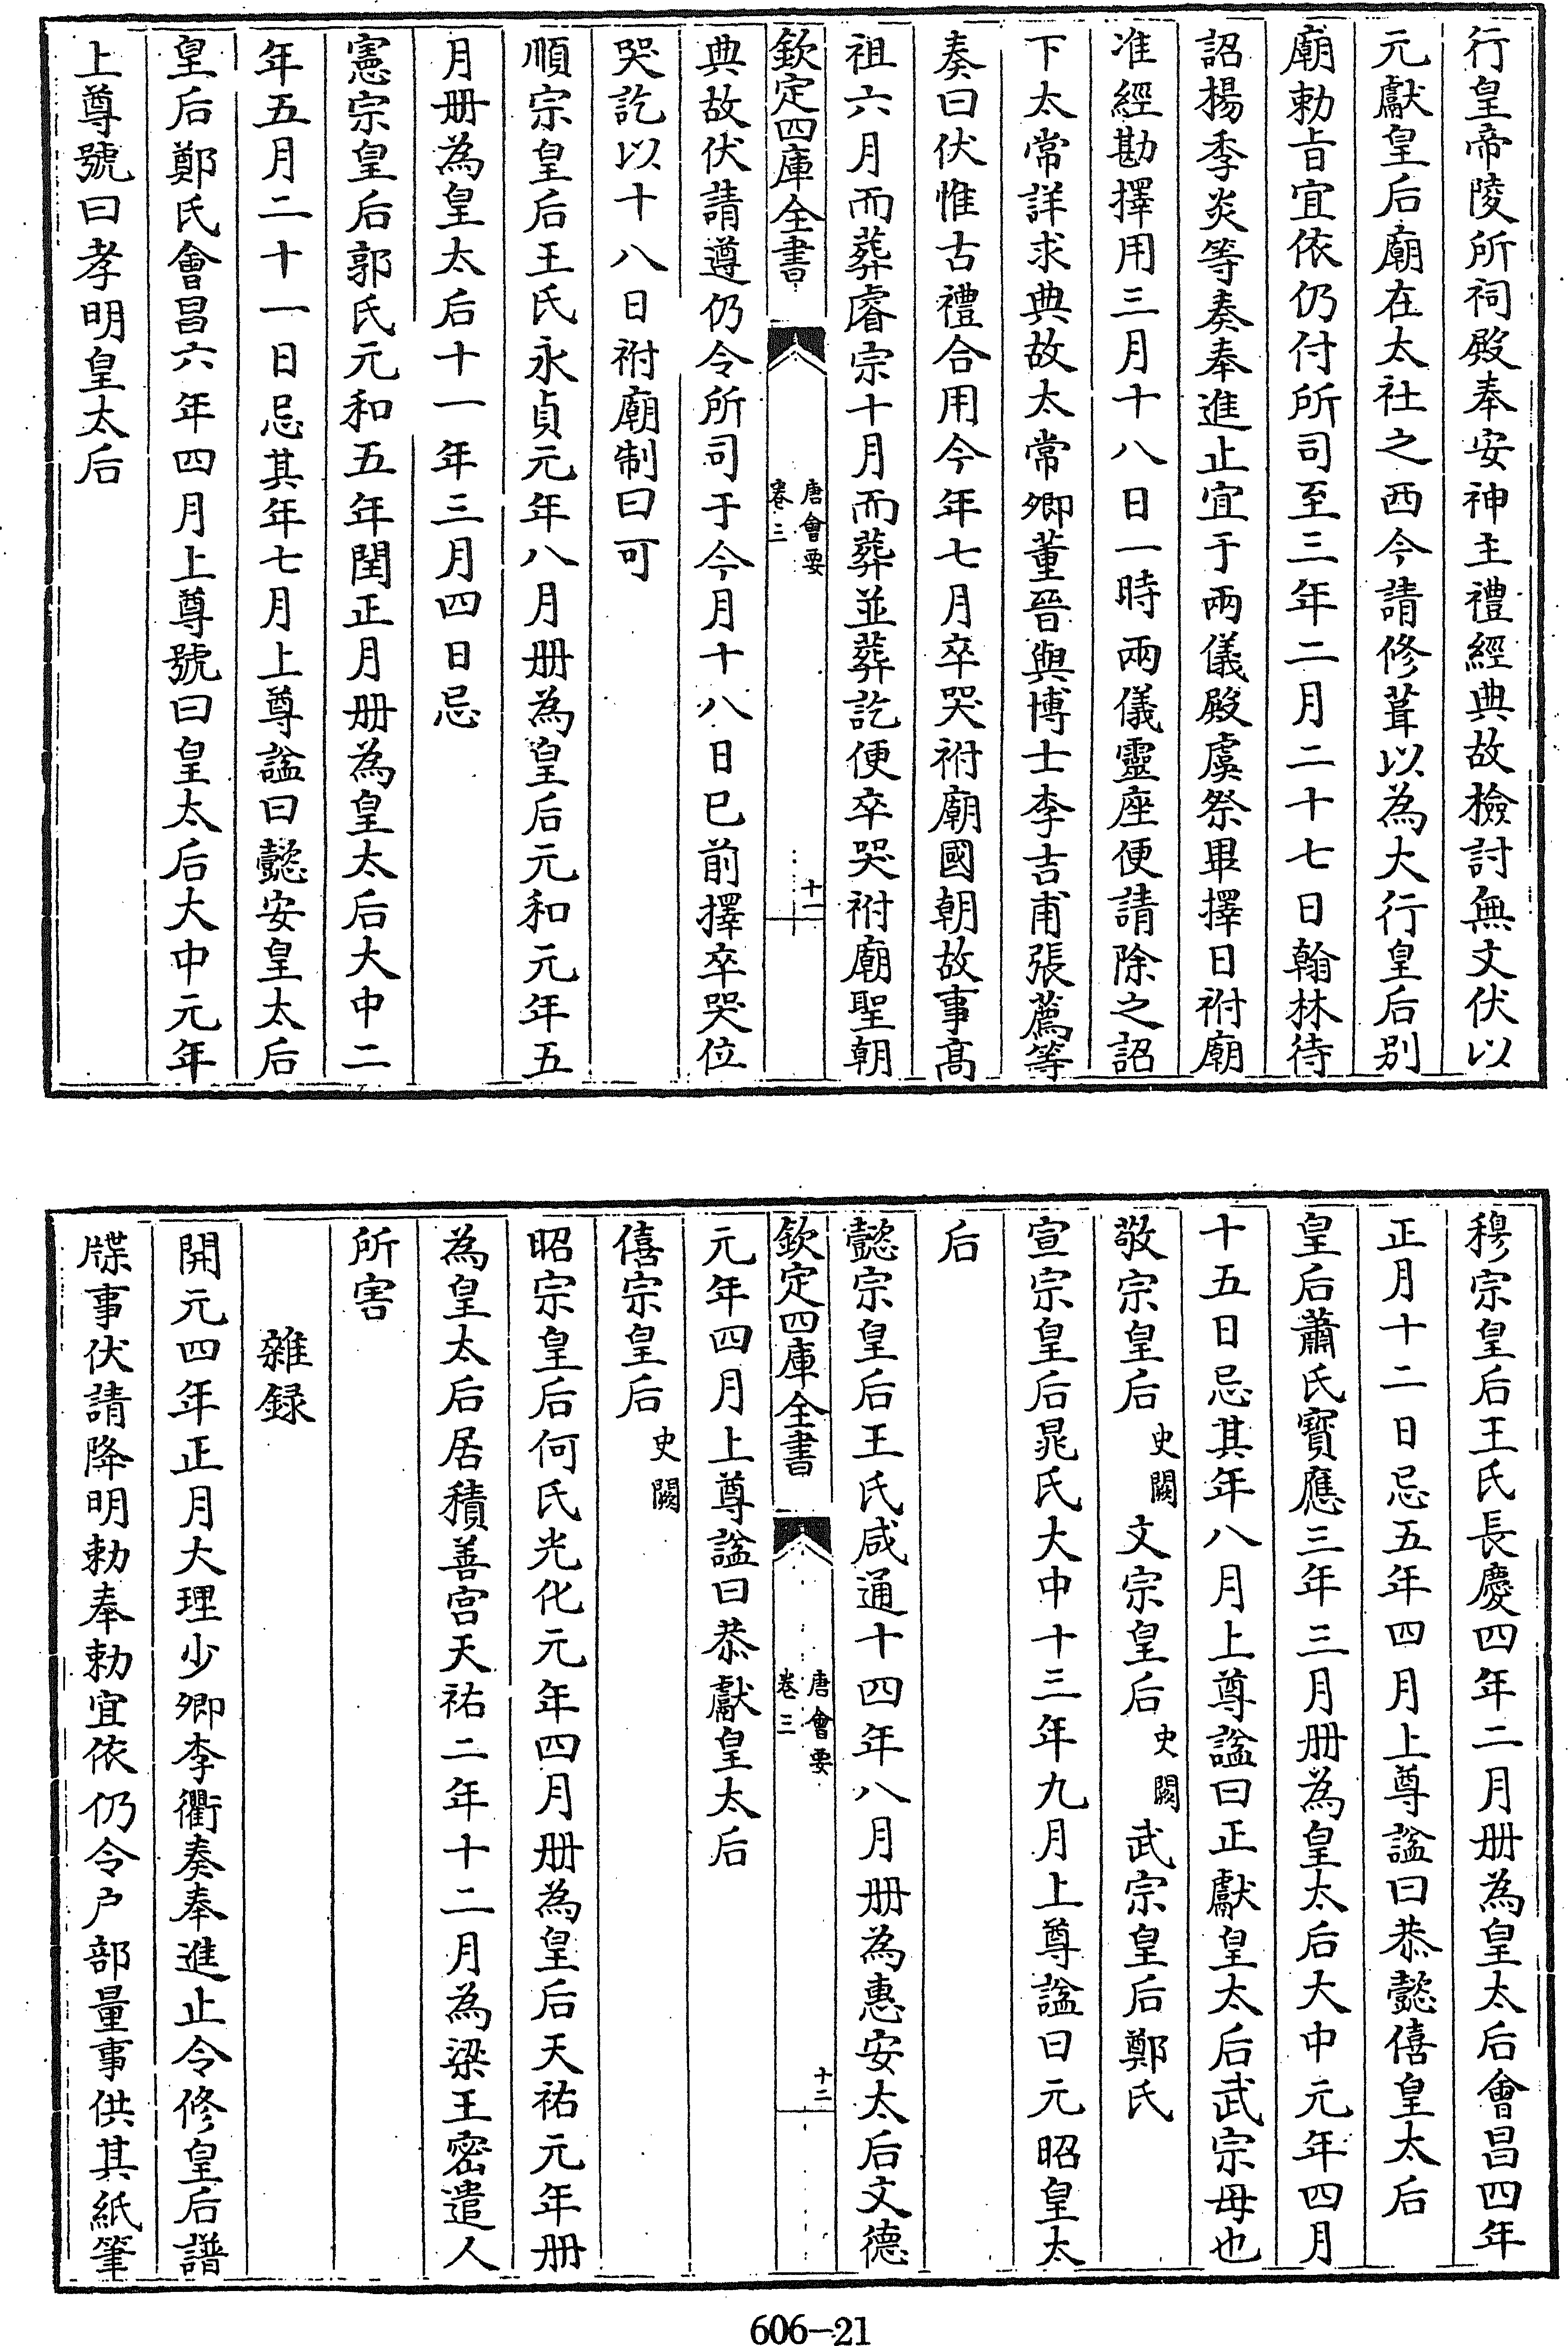 行皇帝陵所祠殿奉安神主禮經典故檢討無文伏以
元獻皇后廟在太社之西今請修葺以為大行皇后别
廟勅㫖宜依仍付所司至三年二月二十七日翰林待
詔揚季炎等奏奉進止宜于兩儀殿虞祭畢擇日祔廟
准經勘擇用三月十八日一時兩儀靈座便請除之詔
下太常詳求典故太常卿董晉與博士李吉甫張薦等
奏曰伏惟古禮合用今年七月卒哭祔廟國朝故事髙
祖六月而葬睿宗十月而葬並葬訖便卒哭祔廟聖朝
欽定四庫全書
唐會要
卷三
十一
典故伏請遵仍令所司于今月十八日已前擇卒哭位
哭訖以十八日祔廟制曰可
順宗皇后王氏永貞元年八月册為皇后元和元年五
月册為皇太后十一年三月四日忌
憲宗皇后郭氏元和五年閏正月册為皇太后大中二
年五月二十一日忌其年七月上尊謚曰懿安皇太后
皇后鄭氏會昌六年四月上尊號曰皇太后大中元年
上尊號曰孝明皇太后
穆宗皇后王氏長慶四年二月册為皇太后會昌四年
正月十二日忌五年四月上尊謚曰恭懿僖皇太后
皇后蕭氏寶應三年三月册為皇太后大中元年四月
十五日忌其年八月上尊謚曰正獻皇太后武宗母也
敬宗皇后史闕文宗皇后史闕武宗皇后鄭氏
宣宗皇后晁氏大中十三年九月上尊謚曰元昭皇太
后
懿宗皇后王氏咸通十四年八月册為惠安太后文德
欽定四庫全書
唐會要
卷三
十二
元年四月上尊謚曰恭獻皇太后
僖宗皇后史闕
昭宗皇后何氏光化元年四月册為皇后天祐元年册
為皇太后居積善宫天祐二年十二月為梁王密遣人
所害
雜録
開元四年正月大理少卿李衢奏奉進止令修皇后譜
牒事伏請降明勅奉勅宜依仍令户部量事供其紙筆
606-21